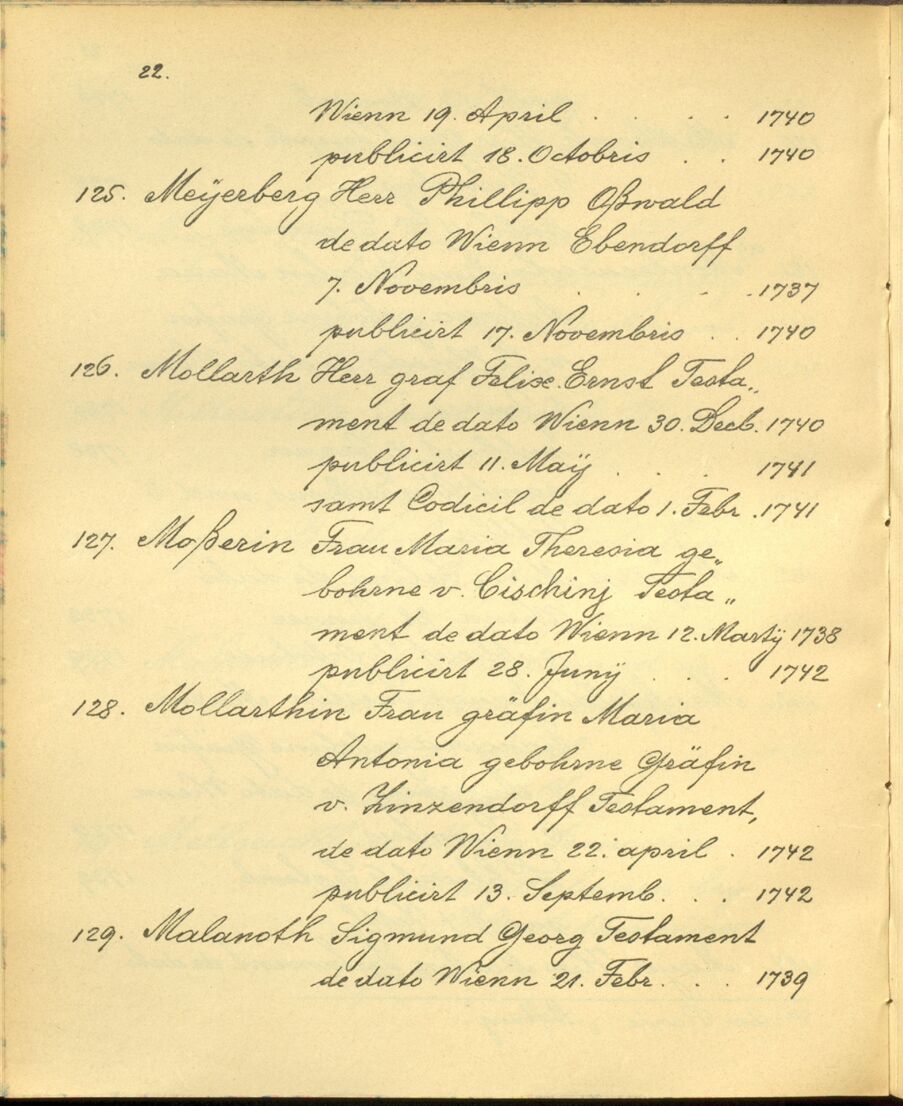 22.
Wienn 19. April . . . . 1740
publicirt 18. Octobris . . 1740
125. Meÿerberg Herr Phillipp Oßwald
de dato Wienn Ebendorff
7. Novembris . . . . 1737
publicirt 17. Novembris . . 1740
126. Mollarth Herr graf Felix Ernst Testa„
ment de dato Wienn 30. Decb. 1740
publicirt 11. Maÿ . . . 1741
samt Codicil de dato 1. Febr. 1741
127. Moßerin Frau Maria Theresia ge„
bohrne v. Cischinj Testa„
ment de dato Wienn 12. Martÿ 1738
publicirt 28. Junÿ . . . 1742
128. Mollarthin Frau gräfin Maria
Antonia gebohrne Gräfin
v. Zinzendorff Testament,
de dato Wienn 22. april . 1742
publicirt 13. Septemb. . . 1742
129. Malanoth Sigmund Georg Testament
de dato Wienn 21. Febr. . . 1739